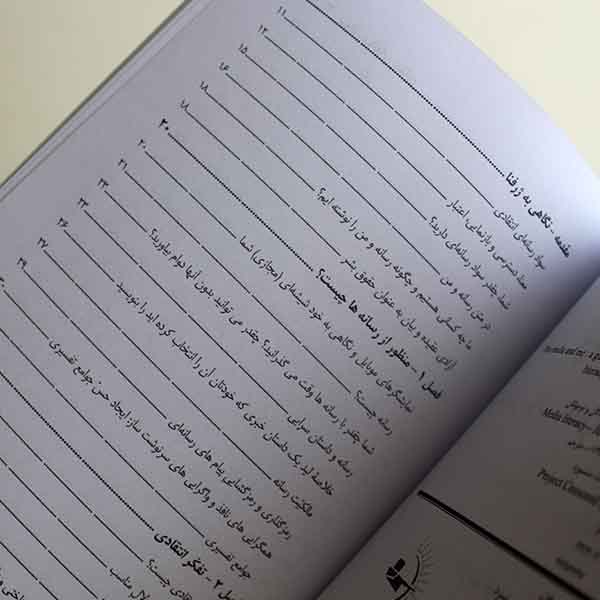 مقدمه - نگاهی به ژرفنا ۱۱
سواد رسانه‌ای انتقادی ۱۴
معنا، دسترسی و بازنمایی اعتبار ۱۵
شما چقدر سواد رسانه‌ای دارید؟ ۱۶
در متن رسانه و من ۱۸
ما چه کسانی هستیم و چگونه رسانه و من را نوشته ایم؟ ۱۸
آزادی عقیده و بیان به عنوان حقوق بشر
فصل ۱ - منظور از رسانه ها چیست؟ ۲۰
نمایشگرهای موبایل و نگاهی به خود شیشه‌ای (مجازی) شما ۲۰
رسانه چیست؟ ۲۱
شما چقدر با رسانه ها وقت می گذرانید؟ چقدر می توانید بدون آنها دوام بیاورید؟ ۲۲
رسانه و داستان سرایی ۲۳
خلاصه لید یک داستان خبری که خودتان آن را انتخاب کرده اید را بنویسید ۲۶
مالکیت رسانه ۲۷
رمزگذاری و رمزگشایی پیام های رسانه‌ای ۲۹
همگرایی های نافذ و واگرایی های سرنوشت ساز: ایجاد حس جوامع تفسیری
جوامع تفسیری
۲ - تفکر انتقادی
انتقادی چیست؟
مناسب
The media and me : a g
Media literacy
Project Censored